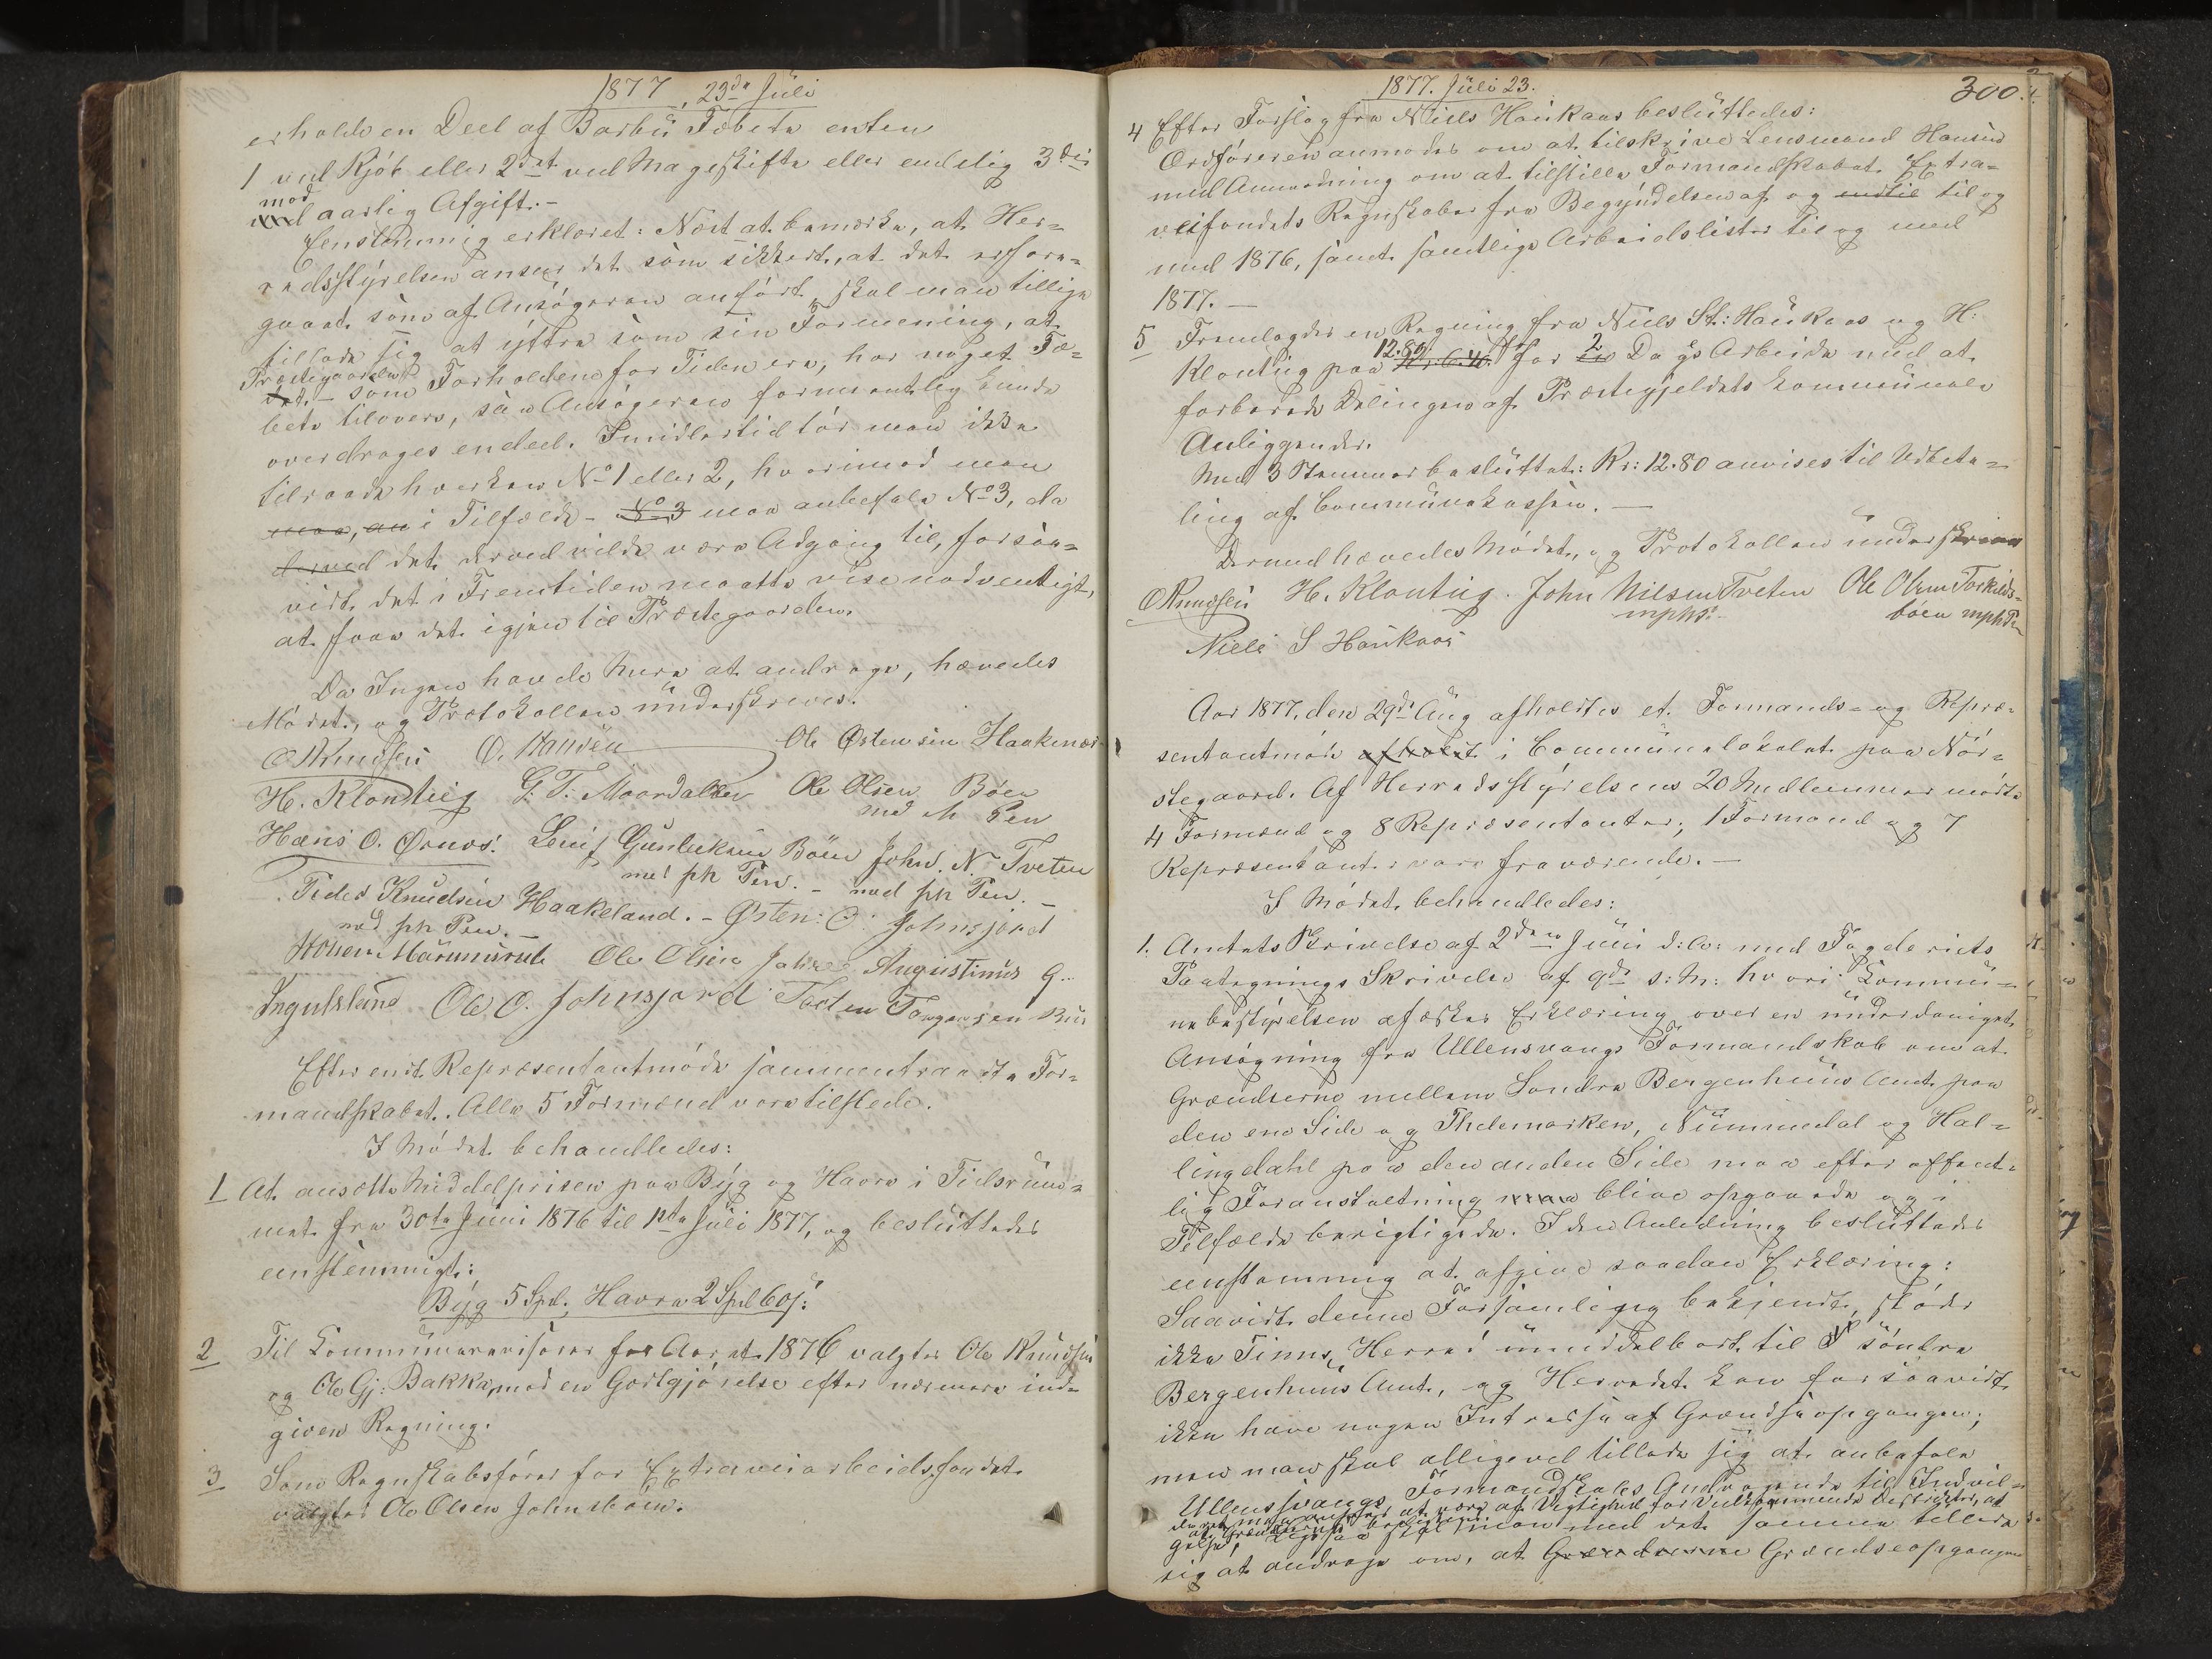 1877, 23de Juli
erholde en Deel af Barbu Tobeta enten
1 ved Kjöb eller 2det ved Mageskifte eller endelig 3die
mod
aarlig Afgift.-
Eenstemmig erklæret: Næst at bemærke, at Her=
redsstyrelsen anseer det som sikkert, at det er fore=
gaaet som af Ansøgeren anført, skal man tillige
tillade sig at yttre som sin Formening, at
Præstegaarden
som Forholdene for Tiden ere, har noget Fæ=
beta tilovers, saa Ansøgeren formeentlig kunde
overdrages endeel. Imidlertid tør man ikke
tilraade hverken No 1 eller 2, hvorimod man
i Tilfælde - No 3 maa anbefale No 3, da
det derved vilde være Adgang til, forsaa=
vidt det i Fremtiden maatte vise nødvendigt,
at faae det igjen til Præstegaarden.
Da Ingen havde Mere at andrage, hævedes
Mødet, og Protokollen underskreves.
O Knudsen O. Hansen Ole Østensen Haakenæs
H. Klonteig G. T. Maardalen Ole Olsen Böen
med ih Pen
Hans O. Ørnes: Leiuf Gunleiksen Böen John. N. Tveten
med ph Pen. - med ph Pen. -
Peder Knudsen Haakeland. - Østen: O: Johnsjord
med ph Pen. -
Ole Olsen Augustinus G..
Ingulsland Ole O. Johnsjord Torgersen
Efter endt Repræsentantmøde sammentraadte For=
mandskabet. Alle 5 Formænd vare tilstede.
I Mødet behandledes:
1 At ansætte Middelprisen paa Byg og Havre i Tidsrum=
met fra 30te Juni 1876 til 1ste Juli 1877, og besluttedes
eenstemmigt:
Byg 5 Spd. Havre 2 Spd 60 s:
2 Til Kommunerevisorer for Aaret 1876 valgtes Ole Knudsen
og Ole Gj: Bakka, mod en Godtgjørelse efter nærmere ind=
given Regning.
3 Som Regnskabsfører for Extraveiarbeidsfondet
valgtes Ole Olsen Johnsböen.
1877. Juli 23. 300.
4 Efter Forslag fra Niels Haukaas besluttedes:
Ordføreren anmodes om at tilskrive Lensmand Hansen
med Anmodning om at tilstille Formandskabet Extra=
veifondets Regnskaber fra Begyndelsen af og indtil til og
med 1876, samt samtlige Arbeidslister til og med
1877. -
5 Fremlagdes en Regning fra Niels St: Haukaas og H:
12.80
Klonteig paa Kr. 6.40. for en 2 Dages Arbeide med at
forberede Delingen af Præstegjeldets kommunale
Anliggender.
Med 3 Stemmer besluttet: Kr: 12.80 anvises til Udbeta=
ling af Communekassen. -
Dermed hævedes Mødet, og Protokollen underskreves
O Knudsen H. Klonteig. John Nilsen Tveten Ole Olsen Torkilds=
mphP. böen mphPn
Niels S Haukaas
Aar 1877, den 29de Aug afholdtes et Formands= og Repræ=
sentantmøde afholdt i Communelokalet paa Nør=
stegaard. Af Herredsstyrelsens 20 Medlemmer mødte
4 Formænd og 8 Repræsentanter; 1 Formand og 7
Repræsentanter vare fraværende. -
I Mødet behandledes:
1. Amtets Skrivelse af 2den Juni d: A: med Fogderiets
Paategnings Skrivelse af 9de s: M: hvori Kommu=
nebestyrelsen afæsker Erklæring over en underdanigst
Ansøgning fra Ullensvangs Formandskab om at
Grændserne mellem Søndre Bergenhuus Amt paa
den ene Side og Thelemarken, Nummedal og Hal=
lingdahl paa den anden Side maa efter offent=
lig Foranstaltning maa blive opgaaede og i
Tilfælde berigtigede. I den Anledning besluttedes
eenstemmig at afgive saadan Erklæring:
Saavidt denne Forsamling bekjendt, støder
ikke Tinns Herred umiddelbart til S søndre
Bergenhuus Amt, og Herredet kan forsaavidt
ikke have nogen Interesse af Grændseopgangen;
men man skal alligevel tillade sig at anbefale
Ullensvangs Formandskabs Andragende til Indvil=
da det maa ansees at være af Vigtighed for Vedkommende Districter, at
gelse, ligesaa skal man med det samme tillade
sig at andrage om, at Grændserne Grændseopgangen